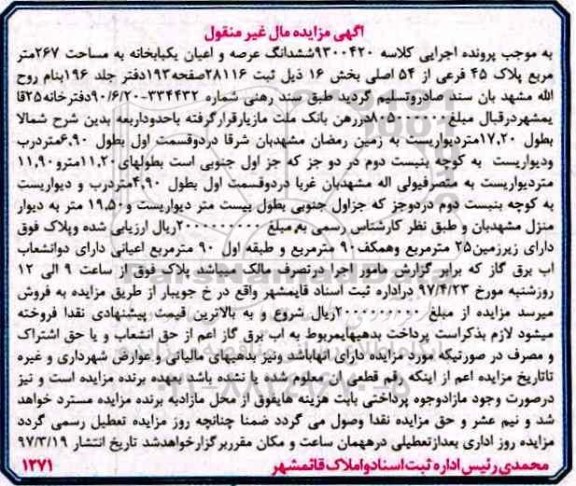 آگهی مزایده مال غیر منقول
به موجب پرونده اجرایی کلاسه ۹۳۰۰۴۲۰ششدانگ عرصه و اعیان یکبابخانه به مساحت ۲۶۷متر
مربع پلاک ۴۵ فرعی از ۵۴ اصلی بخش ۱۶ ذیل ثبت ۲۸۱۱۶صفحه۱۹۳دفتر جلد ۱۹۶بنام روح
الله مشهد بان سند صادروتسلیم گردید طبق سند رهنی شماره ۳۳۴۴۳۲-۹۰/۶/۲۰دفترخانه۲۵قا
یمشهردرقبال مبلغ۸۰۵۰۰۰۰۰۰دررهن بانک ملت مازیارقرارگرفته باحدوداربعه بدین شرح شمالا
بطول ۱۷,۲۰متردیواریست به زمین رمضان مشهدبان شرقا دردوقسمت اول بطول ۶,۹۰متردرب
ودیواریست به کوچه بنبست دوم در دو جز که جز اول جنوبی است بطولهای۱۱,۲۰مترو۱۱,۹۰
متردیواریست به متصرفیولی اله مشهدبان غربا دردوقسمت اول بطول ۴,۹۰متردرب و دیواریست
به کوچه بنبست دوم دردوجز که جزاول جنوبی بطول بیست متر دیواریست و۱۹,۵۰ متر به دیوار
منزل مشهدبان و طبق نظر کارشناس رسمی به مبلغ ۲۰۰۰۰۰۰۰۰۰ریال ارزیابی شده وپلاک فوق
دارای زیرزمین۲۵ مترمربع وهمکف۹۰ مترمربع و طبقه اول ۹۰ مترمربع اعیانی دارای دوانشعاب
اب برق گاز که برابر گزارش مامور اجرا درتصرف مالک میباشد پلاک فوق از ساعت ۹ الی ۱۲
روزشنبه مورخ ۹۷/۴/۲۳ دراداره ثبت اسناد قایمشهر واقع در خ جویبار از طریق مزایده به فروش
میرسد مزایده از مبلغ ۲۰۰۰۰۰۰۰۰۰ریال شروع و به بالاترین قیمت پیشنهادی نقدا فروخته
میشود لازم بذکراست پرداخت بدهیهایمربوط به اب برق گاز اعم از حق انشعاب و یا حق اشتراک
و مصرف در صورتیکه مورد مزایده دارای انهاباشد ونیز بدهیهای مالیاتی وعوارض شهرداری و غیره
تاتاریخ مزایده اعم از اینکه رقم قطعی ان معلوم شده یا نشده باشد بعهده برنده مزایده است و نیز
درصورت وجود مازادوجوه پرداختی بابت هزینه هایفوق از محل مازادبه برنده مزایده مسترد خواهد
شد و نیم عشر و حق مزایده نقدا وصول می گردد ضمنا چنانچه روز مزایده تعطیل رسمی گردد
مزایده روز اداری بعدازتعطیلی درهمان ساعت و مکان مقرربرگزارخواهدشد تاریخ انتشار ۹۷/۳/۱۹
محمدی رئیس اداره ثبت اسنادواملاک قائمشهر ۱۳۷۱